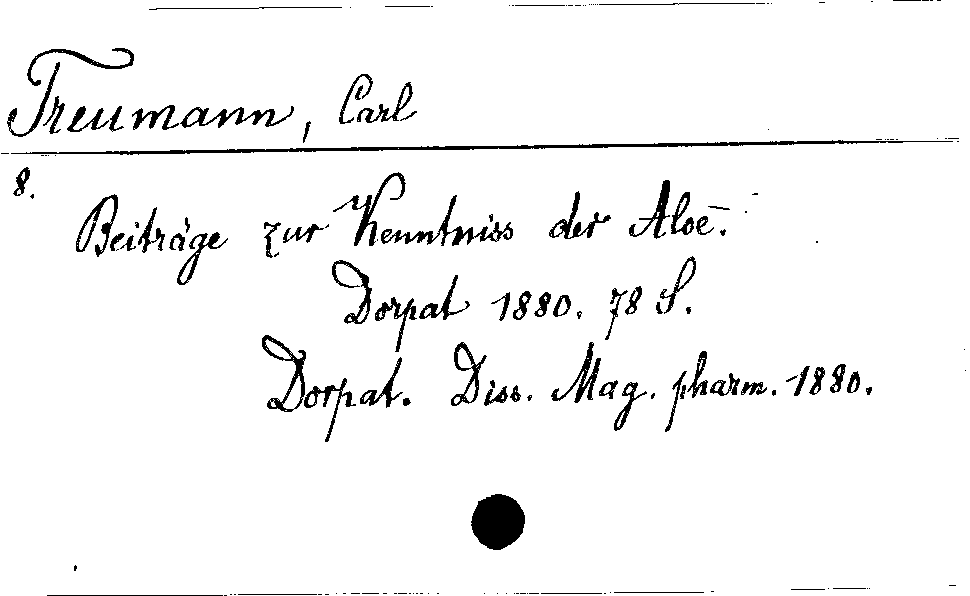 Treumann, Carl
8.
Beiträge zur Kenntniss der Aloë.
Dorpat 1880. 78 S.
Dorpat. Diss. Mag. pharm. 1880.